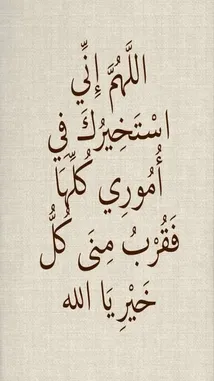 اللَّهُمَّ إِنِّي
اسْتَخِيرُكَ فِي
أُمُورِي كُلِّهَا
فَقُرْبُ مِنَي كُلُّ
خَيْرِ يَا الله